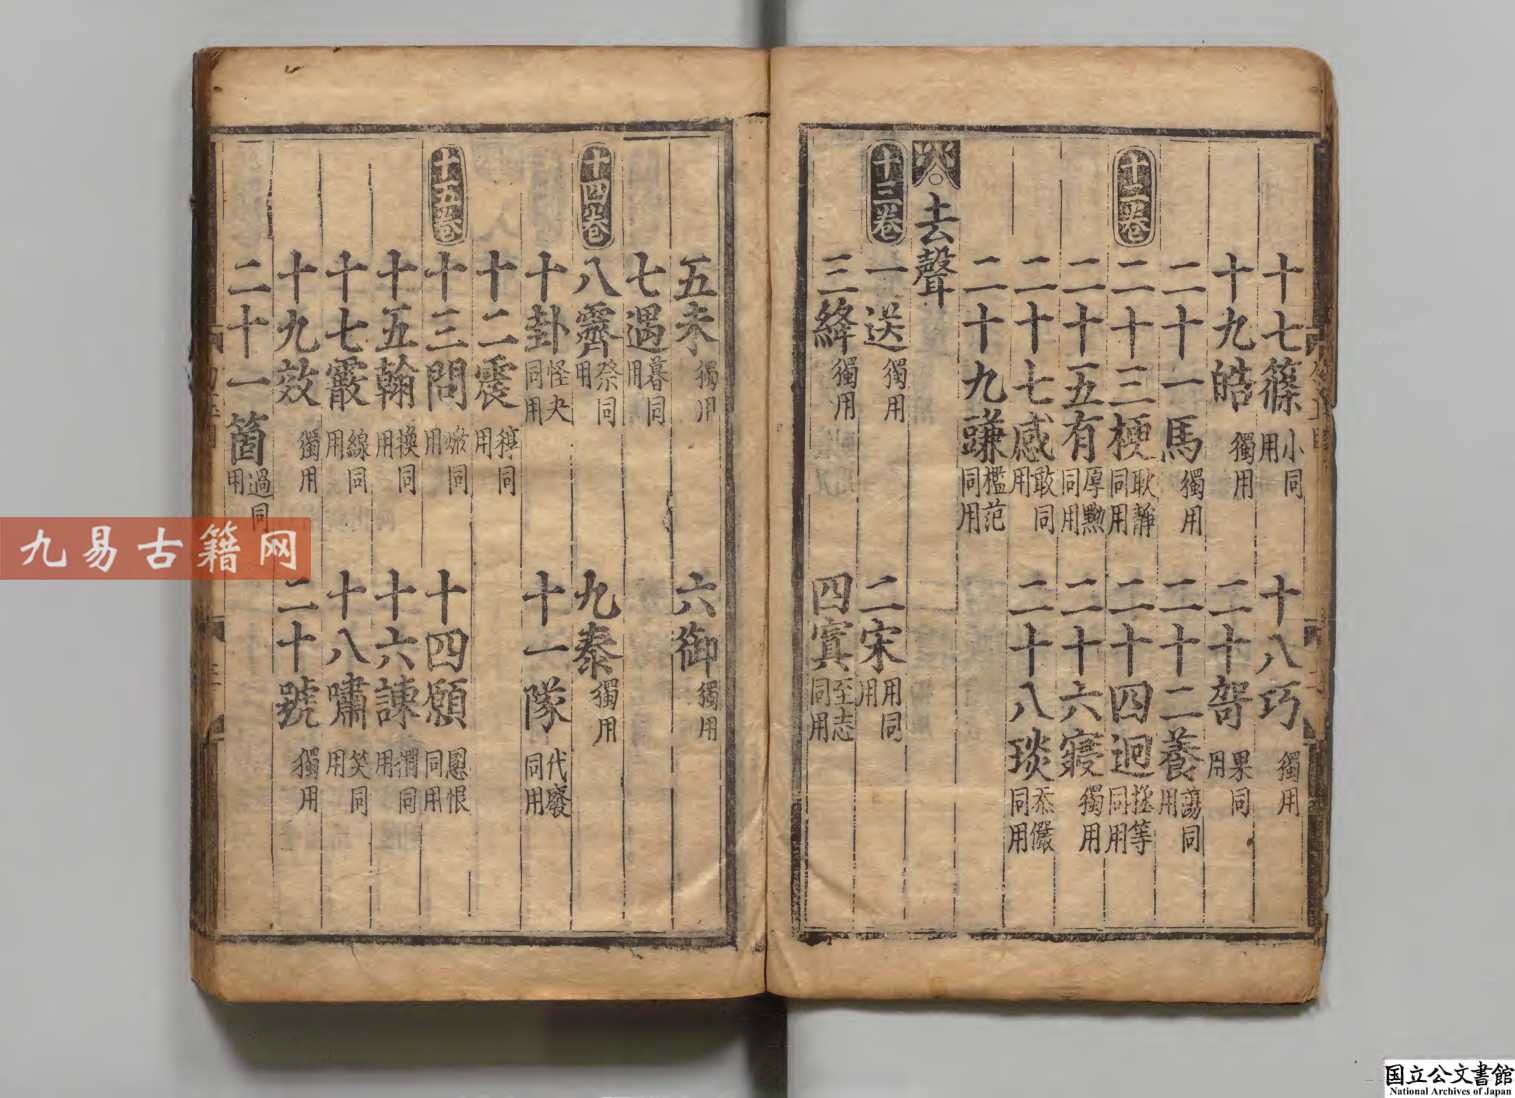 十七篠小同用 十八巧獨用
十九皓獨用 二十哿果同用
二十一馬獨用 二十二養蕩同用
十二卷 二十三梗耿靜同用 二十四迥拯等同用
二十五有厚黝同用 二十六寑獨用
二十七感敢同用 二十八琰忝儼同用
二十九豏檻范同用
去聲
十三卷 一送獨用 二宋用同用
三絳獨用 四寘至志同用
五未獨用 六御獨用
七遇暮同用
十四卷 八霽祭同用 九泰獨用
十卦怪夬同用 十一隊代廢同用
十二震稕同用
十五卷 十三問焮同用 十四願慁恨同用
十五翰換同用 十六諫襉同用
十七霰線同用 十八嘯笑同用
十九效獨用 二十號獨用
二十一箇過同用
九易古籍网
国立公文書館
National Archives of Japan